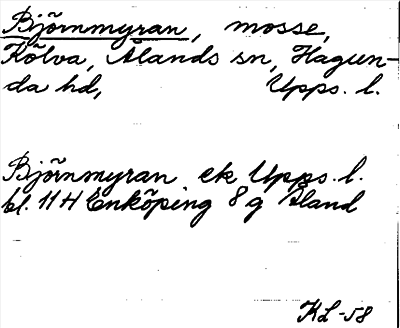 Björnmyran, mosse,
Kölva, Ålands sn, Hagun-
da hd, Upps. l.
Björnmyran ek Upps. l.
bl. 11 H Enköping 8 g Åland
KL -58